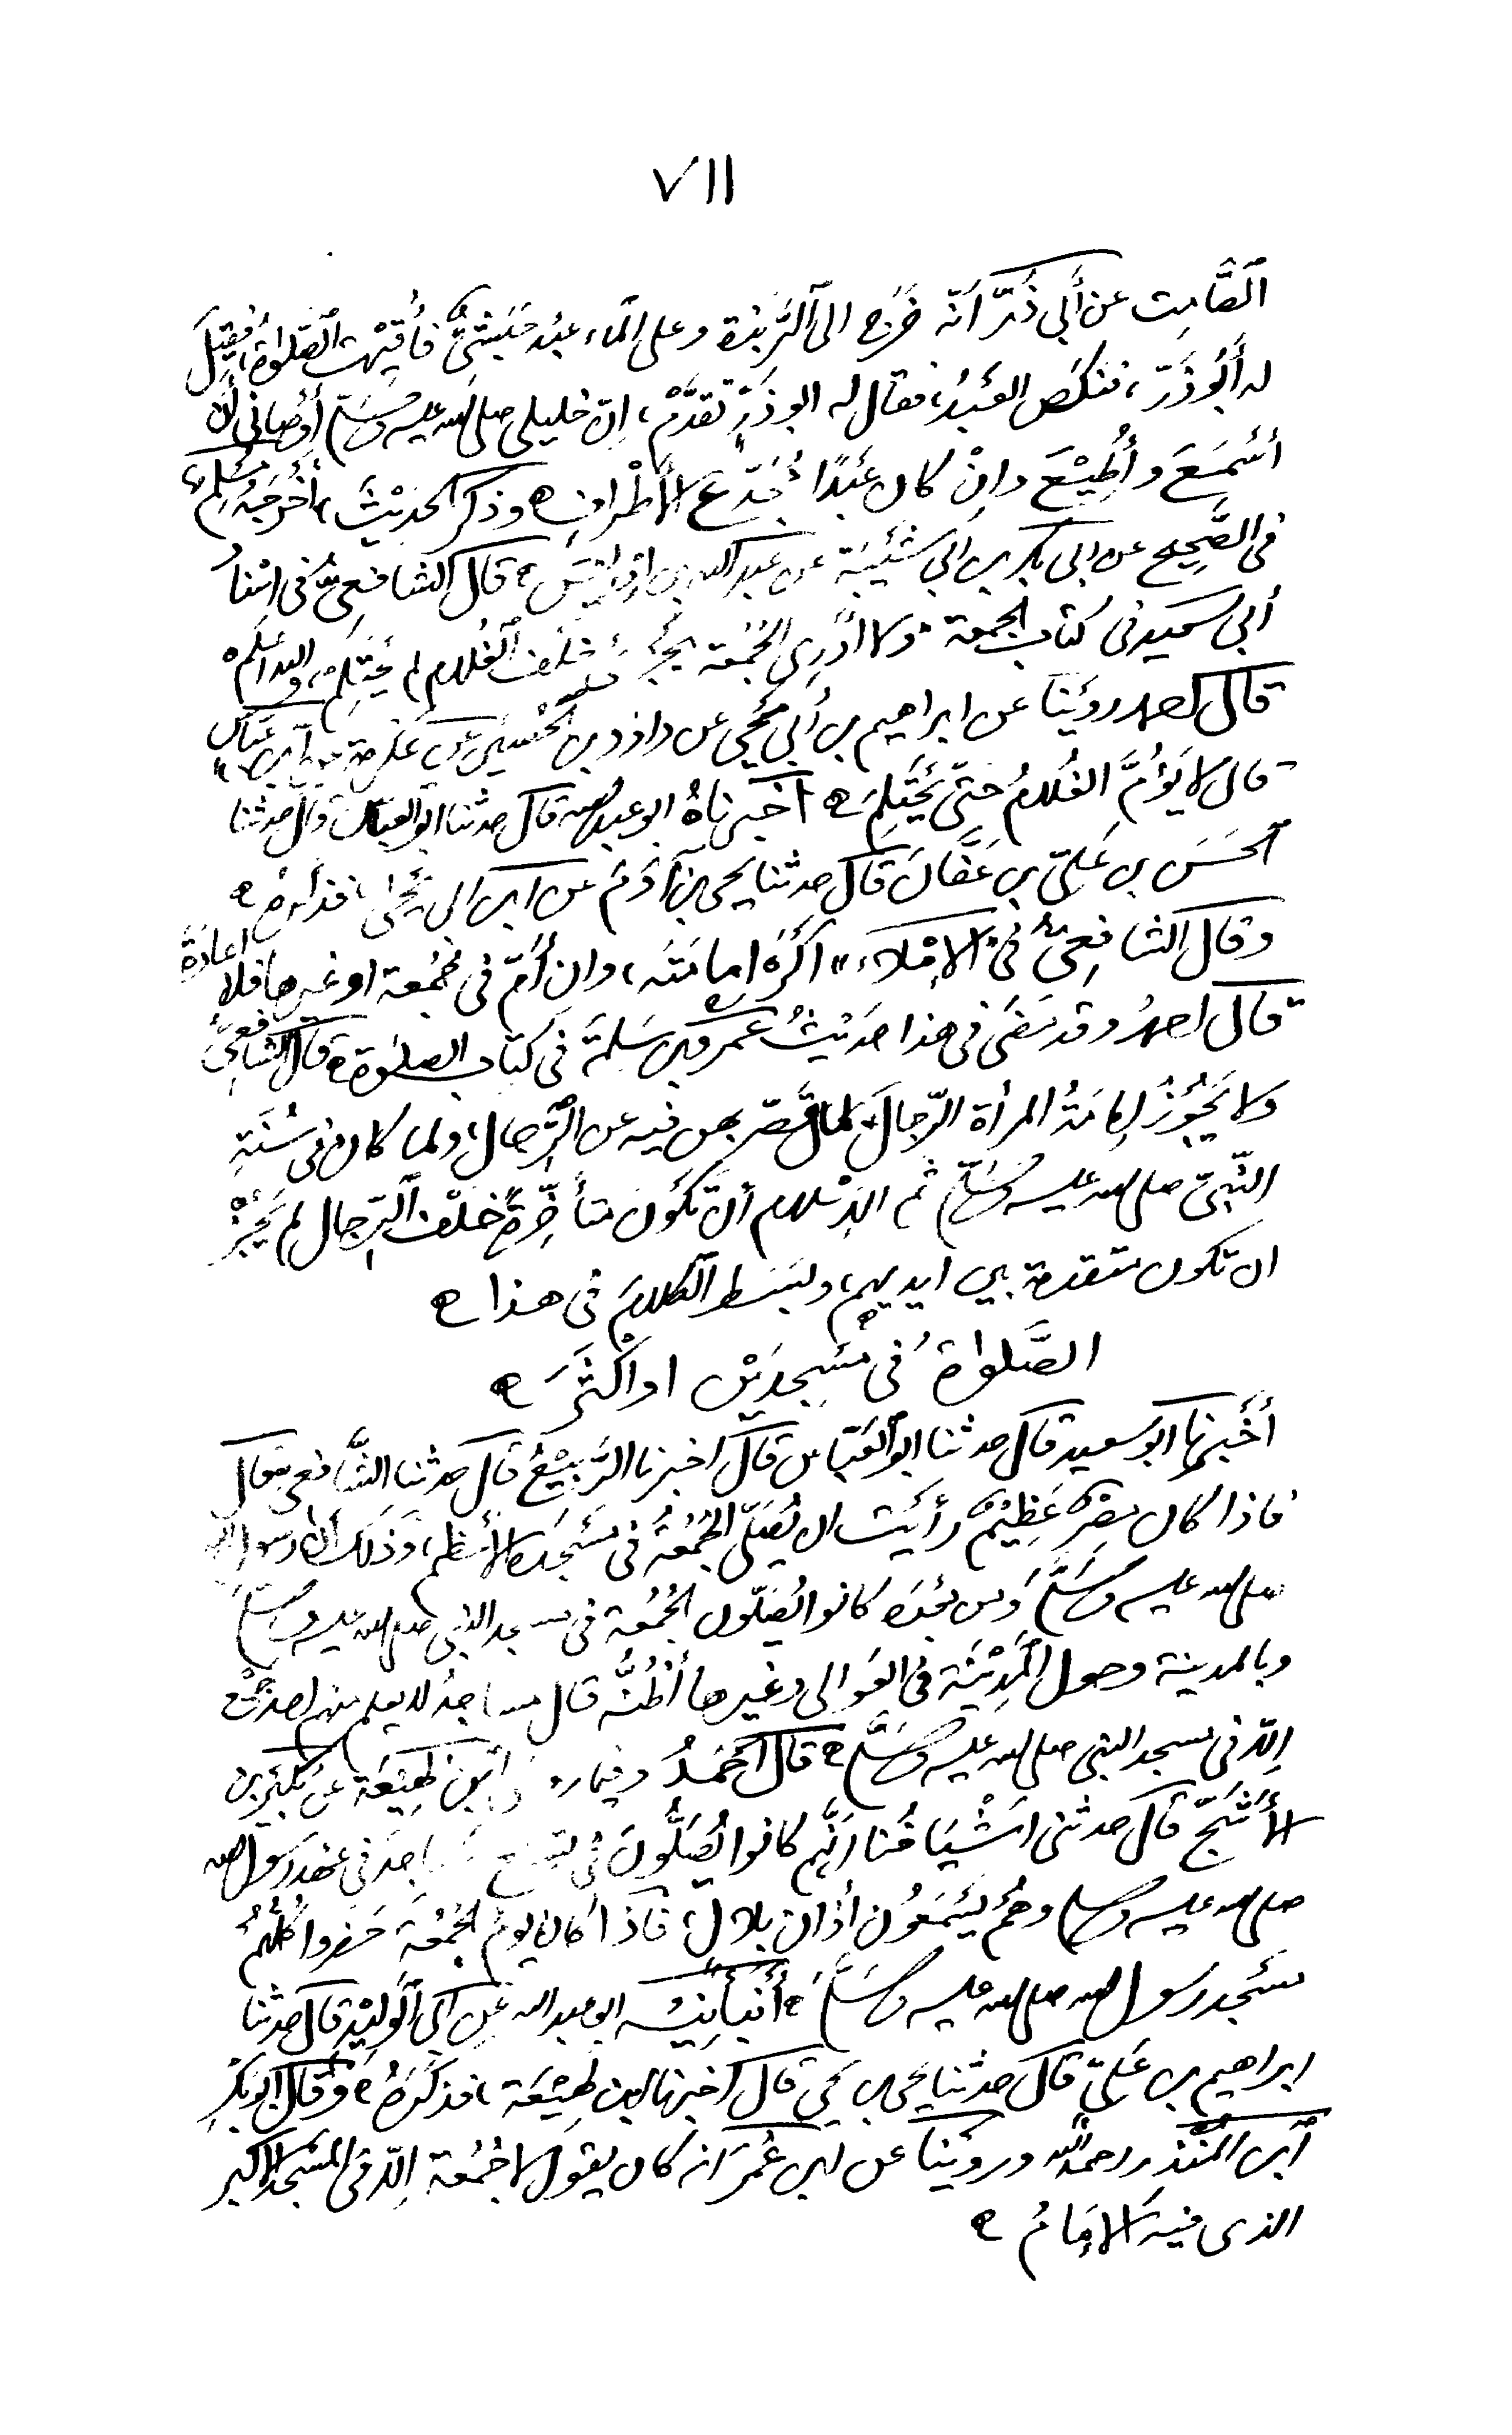 ٧١١
الصَّامِت عن أبي ذَرّ أنّه خرَج الى الرَّبَذة وعلى الماء عبْد حَبَشيٌّ فأُقيمت الصلوة، فقيل
له أَبُوذَرّ، فنكَص العَبْدُ، فقال له ابوذَرّ تقدَّمْ، إنّ خليلى صلى الله عليه وسلم أوصانى أن
أسْمَعَ وأُطِيْعَ وإنْ كان عَبْدًا مُجَدَّع الأَطْراف ه وذكر الحديْثَ، أخْرجَهُ مُسْلِم
فى الصَّحِيح عن ابى بكر بن ابي شَيْبَة عن عبدالله بن ادْرِيْسَ ه قال الشافعىّ فى
أبي سعيد فى كتاب الجمعة ولا أدْرِى الجُمُعة خَلْفَ الْغُلام لم يَحْتَلِمْ، والله أعلم ه
قال احمد روَيْنا عن ابراهيم بن أبي يحيى عن داود بن الحُصَين عن عكرمة عن ابن عبّاس
قال لا يَؤُمُّ الغُلامُ حتّى يَحْتَلِمَ ه أخبرناهُ ابو عبدالله قال حدثنا ابوالعباس قال حدثنا
الحَسَن بن عَلىّ بن عَفَّانَ قال حدثنا يحيى بن آدَمَ عن ابن ابى يَحْيٰى، فذكره ه
وقال الشافعِىّ فى الإمْلاء، أكْرَهُ إمامَتَه، وان أمَّ فى جُمُعة او غيرها فلا إعادَةَ
قال احمدُ وقد مَضَى فى هذا حَدِيْثُ عَمْرو بن سَلِمَةَ فى كتاب الصلوة ه قال الشافعىُّ
ولا يَجُوْزُ إمامَةُ المرأة الرّجالَ لما قُصّر بهن فيه عن الرِّجال، ولما كان فى سُنّةِ
النّبىّ صلى الله عليه وسلم ثم الإسْلام أن تكُون متأخِّرةً خلْف الرّجال لم يَجُزْ
ان تكون متقدمة بين ايديهم، وبَسَط الكلامَ فى هذا ه
الصَّلوٰة فى مَسْجِدَيْن او اكثَرَ ه
أخْبَرنا ابوسعيد قال حدثنا ابوالعَبّاس قال اخبرنا الرَّبيْعُ قال حدثنا الشَّافعى قال
فاذا كان مِصْرٌ عَظِيْمٌ رأيْت ان يُصَلّى الجُمُعةُ فى مَسْجِده الأعظم، وذلك أنّ رسول الله
صلى الله عليه وسلم ومَن بَعْدَه كانوا يُصَلّون الجُمُعة فى مسجد النبى صلى الله عليه وسلم
وبالمدينة وحول المَدِيْنَة فى العَوالى وغيرها أظُنُّه قال مساجدُ لا يعلم منهم احد جمَّع
إلّا فى مسجد النبى صلى الله عليه وسلم ه قال أحْمَدُ وفيما ابنُ لَهِيْعَة عن بُكَيْر بن
الأشَجّ قال حدثنى أشْيَاخُنا انَّهم كانوا يُصَلُّونَ فى تسع مساجد فى عهد رسول الله
صلى الله عليه وسلم وهُمْ يَسْمَعُون أذان بلال، فاذا كان يومُ الجُمُعَة حَضَروا كُلُّهُمْ
مَسْجِدَ رسول الله صلى الله عليه وسلم ه أنبأنِيْه ابوعبدالله عن ابى الْوَلِيْد قال حدثنا
ابراهيم بن عَلىّ قال حدثنا يحيى بن يحيى قال أخبرنا ابن لهِيْعَة، فذكرَهُ ه وقال ابوبَكْرِ
ابن المُنْذِر رحمه الله وروَيْنا عن ابن عُمَرَ انه كان يقول لا جُمُعة إلّا فى المَسْجِد الأكبر
الذى فيه الإِمَامُ ه